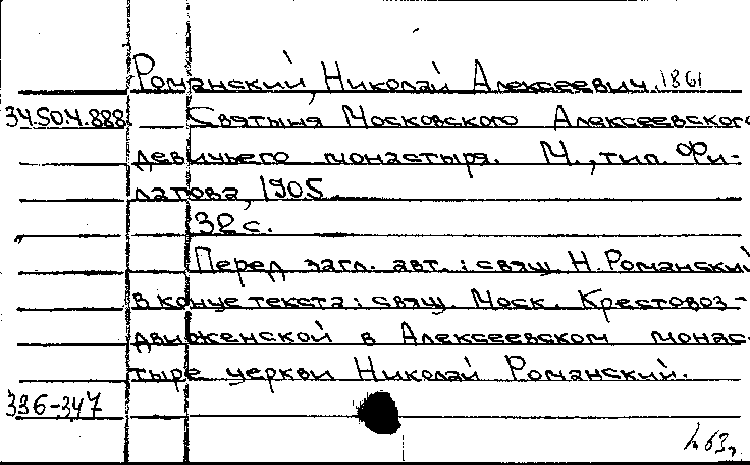 Романский, Николай Алексеевич, 1861
34.504.888 Святыня Московского Алексеевского
девичьего монастыря. М., тип. Фи-
латова, 1905
32 с.
Перед загл. авт.: свящ. Н. Романский
в конце текста: свящ. Моск. Крестовоз-
движенской в Алексеевском монас-
тыре церкви Николай Романский.
336-347